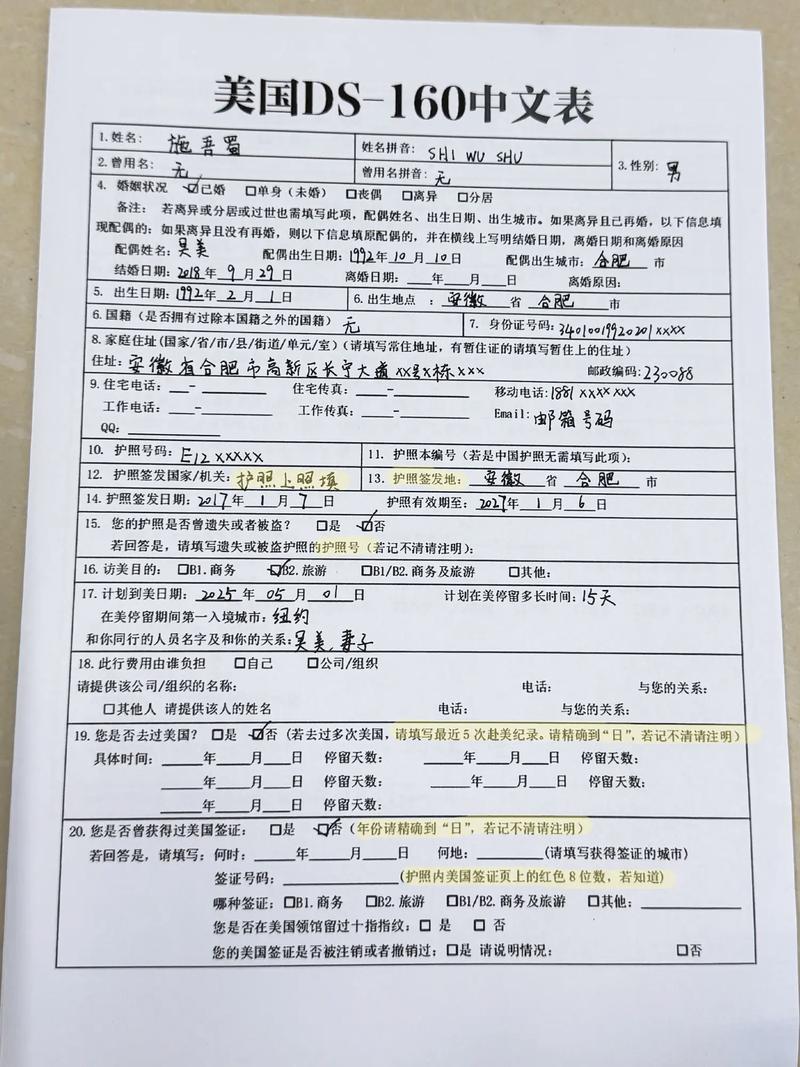 美国DS-160中文表
1.姓名: 施吾蜀 姓名拼音: SHI WU SHU 3.性别: 男
2.曾用名: 无 曾用名拼音: 无
4. 婚姻状况 ☑已婚 □单身(未婚) □丧偶 □离异 □分居
备注: 若离异或分居或过世也需填写此项, 配偶姓名、出生日期、出生城市。如果离异且已再婚, 以下信息填
现配偶的; 如果离异且没有再婚, 则以下信息填原配偶的, 并在横线上写明结婚日期, 离婚日期和离婚原因
配偶姓名: 吴美 配偶出生日期: 1992年10月10日 配偶出生城市: 合肥 市
结婚日期: 2018年9月29日 离婚日期: ___年___月___日 离婚原因:
5. 出生日期: 1992年2月1日 6.出生地点 : 安徽 省 合肥 市
6.国籍(是否拥有过除本国籍之外的国籍) 无 7. 身份证号码: 34010019920201xxxx
8.家庭住址(国家/省/市/县/街道/单元/室)(请填写常住地址, 有暂住证的请填写暂住上的住址)
住址: 安徽省合肥市高新区长宁大道xx号x栋xxx 邮政编码: 230088
9.住宅电话: ___-______ 住宅传真: ___-______ 移动电话: 1881xxxxxxx
工作电话: ___-______ 工作传真: ___-______ Email: 邮箱号码
QQ: ________
10. 护照号码: E12xxxxx 11. 护照本编号(若是中国护照无需填写此项):
12. 护照签发国家/机关: 护照上照填 13. 护照签发地: 安徽 省 合肥 市
14.护照签发日期: 2017年1月7日 护照有效期至: 2027年1月6日
15. 您的护照是否曾遗失或者被盗? □是 ☑否
若回答是, 请填写遗失或被盗护照的护照号(若记不清请注明):
16. 访美目的: □B1.商务 ☑B2.旅游 □B1/B2.商务及旅游 □其他:
17. 计划到美日期: 2025年05月01日 计划在美停留多长时间: 15天
在美停留期间第一入境城市: 纽约
和你同行的人员名字及和你的关系: 吴美,妻子
18. 此行费用由谁负担 □自己 □公司/组织
请提供该公司/组织的名称: 电话: 与您的关系:
□其他人 请提供该人的姓名 电话: 与您的关系:
19. 您是否去过美国? □是 ☑否 (若去过多次美国, 请填写最近5次赴美纪录。请精确到“日”, 若记不清请注明)
具体时间: ____年___月___日 停留天数: ____年___月___日 停留天数:
____年___月___日 停留天数: ____年___月___日 停留天数:
____年___月___日 停留天数:
20.您是否曾获得过美国签证: □是 ☑否(年份请精确到“日”, 若记不清请注明)
若回答是, 请填写: 何时: ____年____月___日 何地: _______(请填写获得签证的城市)
签证号码: ____________(护照内美国签证页上的红色8位数, 若知道)
哪种签证: □B1.商务 □B2.旅游 □B1/B2.商务及旅游 □其他: __________
您是否在美国领馆留过十指指纹: □ 是 □ 否
您的美国签证是否被注销或者撤销过: □是 请说明情况: □否